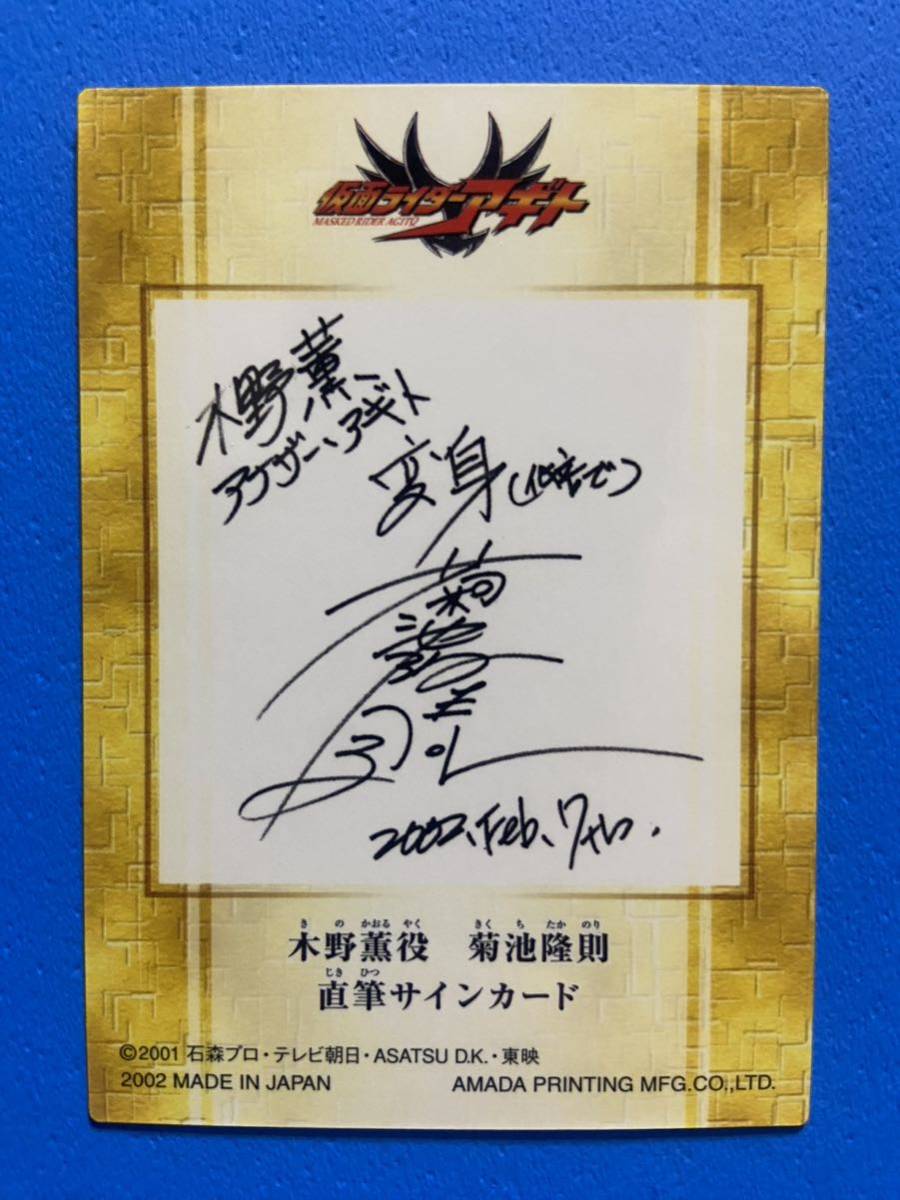 仮面ライダーアギト
MASKED RIDER AGITΩ
木野薫
アナザーアギト
変身(低音で)
菊池隆則
2002. Feb. 7th.
きの かおる やく きくち たかのり
木野薫役 菊池隆則
じき ひつ
直筆サインカード
©2001 石森プロ・テレビ朝日・ASATSU D.K.・東映
2002 MADE IN JAPAN AMADA PRINTING MFG.CO.,LTD.